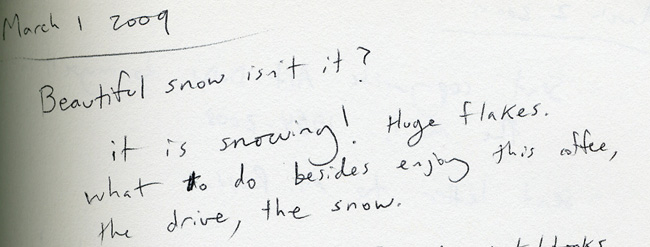 March 1 2009
Beautiful snow isn't it?
it is snowing! Huge flakes.
what to do besides enjoy this coffee,
the drive, the snow.